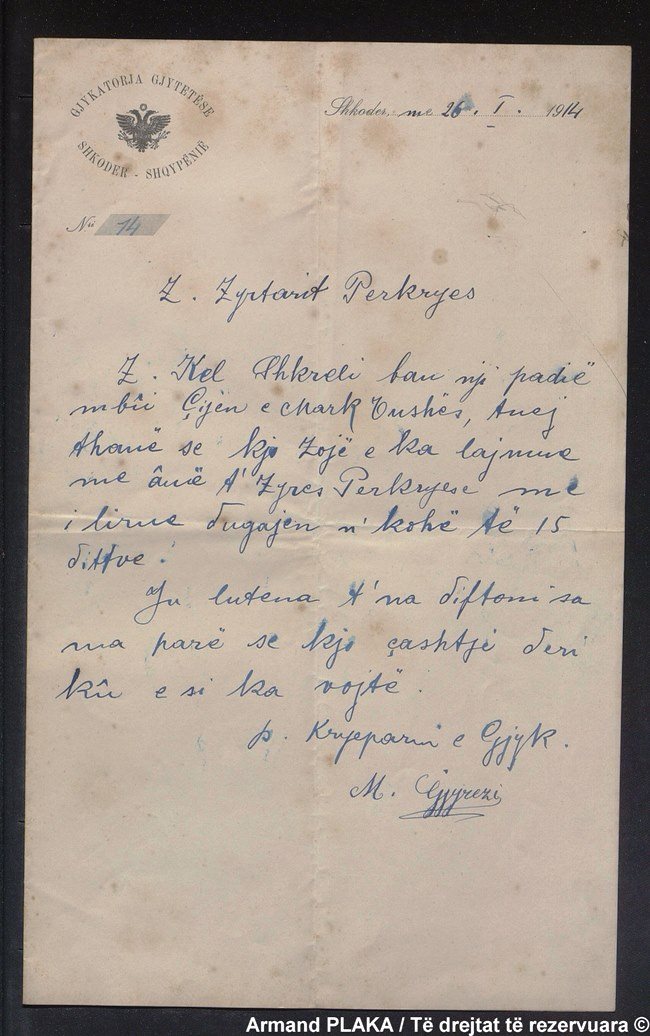 GJYKATORJA GJYTETËSE
SHKODER - SHQYPËNIË
Shkoder, me 26. I. 1914
Nri 14
Z. Zyrtarit Perkryes
Z. Kel Shkreli ban nji padië
mbii Çijen e Mark Tushës, tuej
thanë se kjo Zojë e ka lajmue
me ânë t' Zyres Perkryese me
i lirue dugajen n' kohë të 15
dittve.
Ju lutena t' na diftoni sa
ma parë se kjo çashtje deri
kû e si ka vojtë.
p. Kryeparin e Gjyk.
M. Gjyrezi
Armand PLAKA / Të drejtat të rezervuara ©